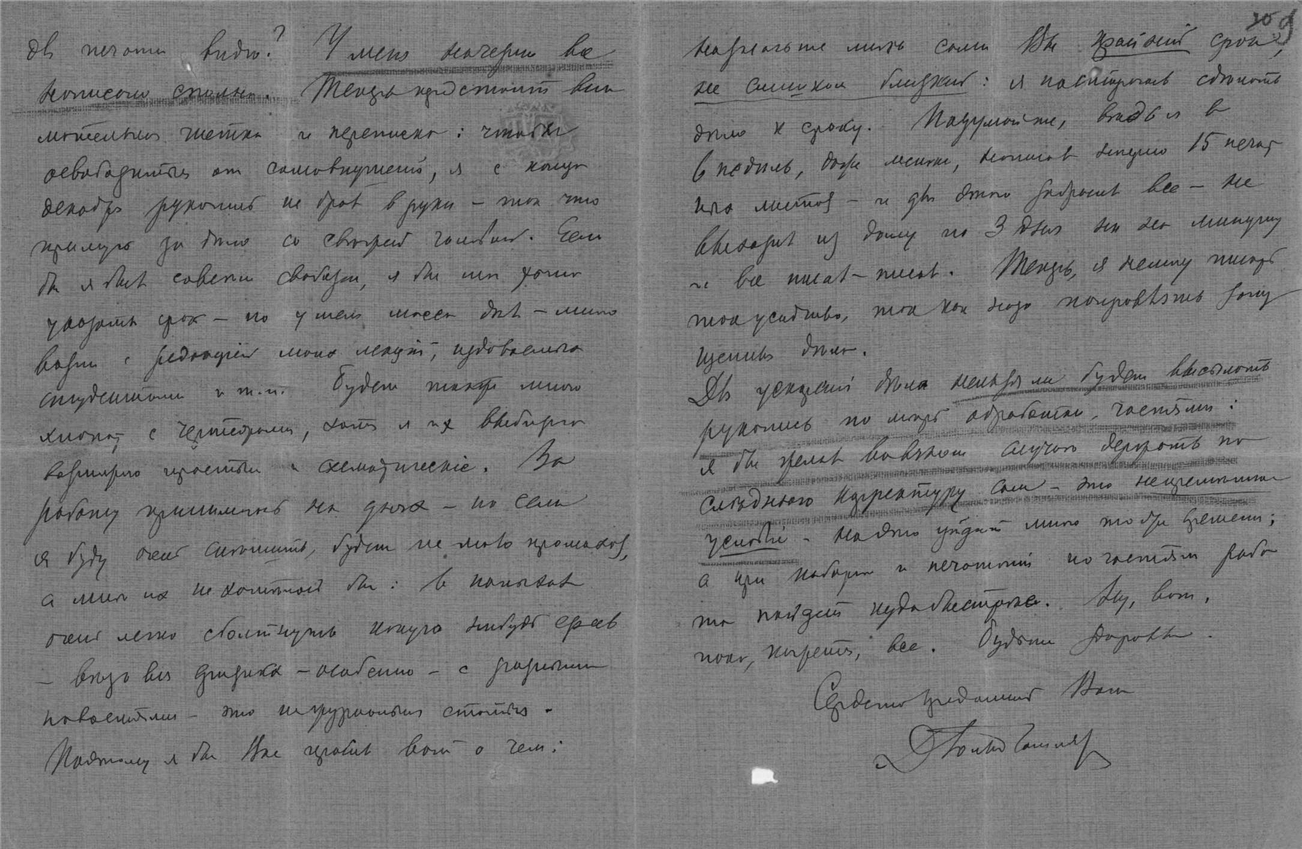 для печати видно? У меня начерно все
написано сполна. Теперь предстоит вни
мательная чистка и переписка: чтобы
освободиться от самовнушений, я с конца
декабря рукопись не брал в руки – так что
примусь за дело со свежей головой. Если
бы я был совсем свободен, я бы мог точно
указать срок – но у меня масса дел – много
возни с редакцией моих лекций, издаваемых
студентами и т.п. Будет также много
хлопот с чертежами, хотя я их выбираю
возможно простые и схематические. За
работу принимаюсь на днях – но если
я буду очень спешить, будет не мало промахов,
а мне их не хотелось бы: в попыхах
очень легко сболтнуть какую нибудь ересь
– ведь вся физика – особенно – с разными
новостями – это не журнальная статья.
Поэтому я бы Вас просил вот о чем:
назначьте мне сами Вы крайний срок,
не слишком близкий: я постараюсь сделать
дело к сроку. Подумайте, ведь я в
6 недель, даже менее, написал начерно 15 печат
ных листов – и для этого забросил все – не
выходил из дому по 3 дня ни на минуту
и все писал – писал. Теперь, я не могу писать
так усидчиво, так как надо поправлять
дела.
Для ускорения дела нельзя ли будет высылать
рукопись по мере обработки – частями:
я бы желал во всяком случае держать по
следнюю корректуру сам – это непременное
условие – на это уйдет много тоже времени;
а при наборе и печатании по частям рабо
та пойдет куда быстрее. Ну, вот,
пока, кажется, все. Будьте здоровы.
Сердечно преданный Вам